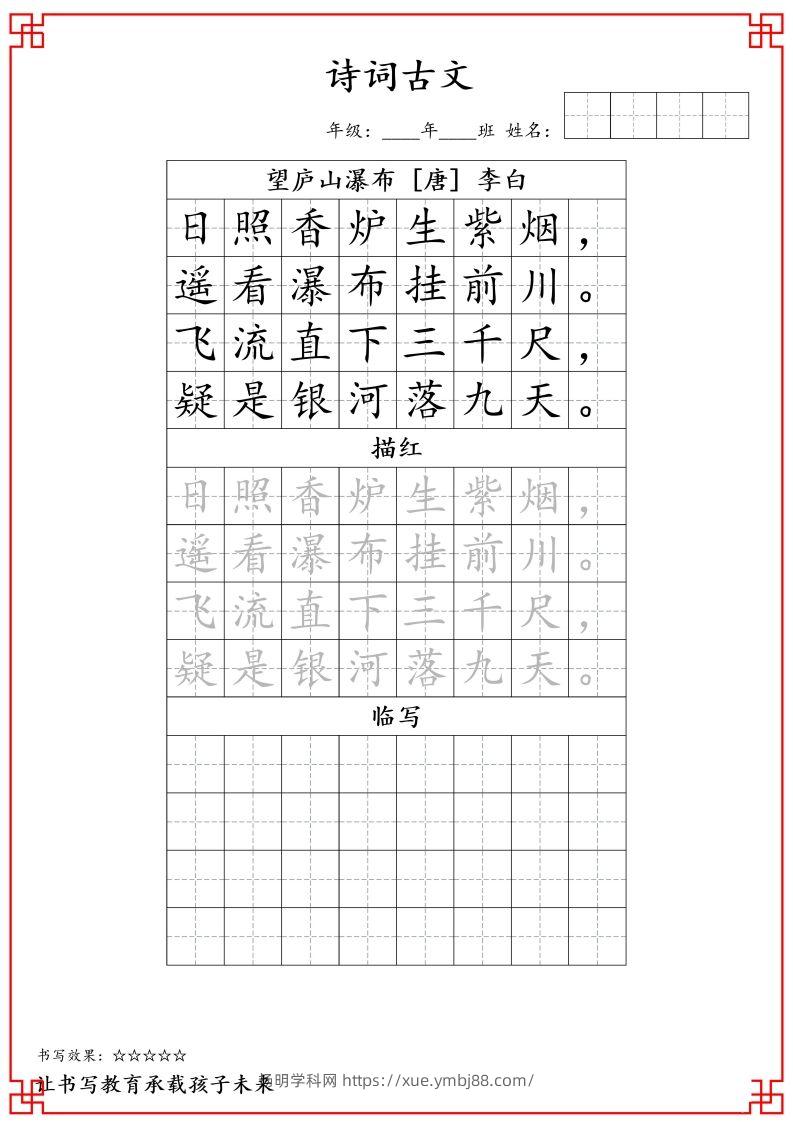 诗词古文
年级：____年____班 姓名：
望庐山瀑布［唐］李白
日照香炉生紫烟，
遥看瀑布挂前川。
飞流直下三千尺，
疑是银河落九天。
描红
日照香炉生紫烟，
遥看瀑布挂前川。
飞流直下三千尺，
疑是银河落九天。
临写
书写效果：☆☆☆☆☆
让书写教育承载孩子未来
扬明学科网 https://xue.ymbj88.com/